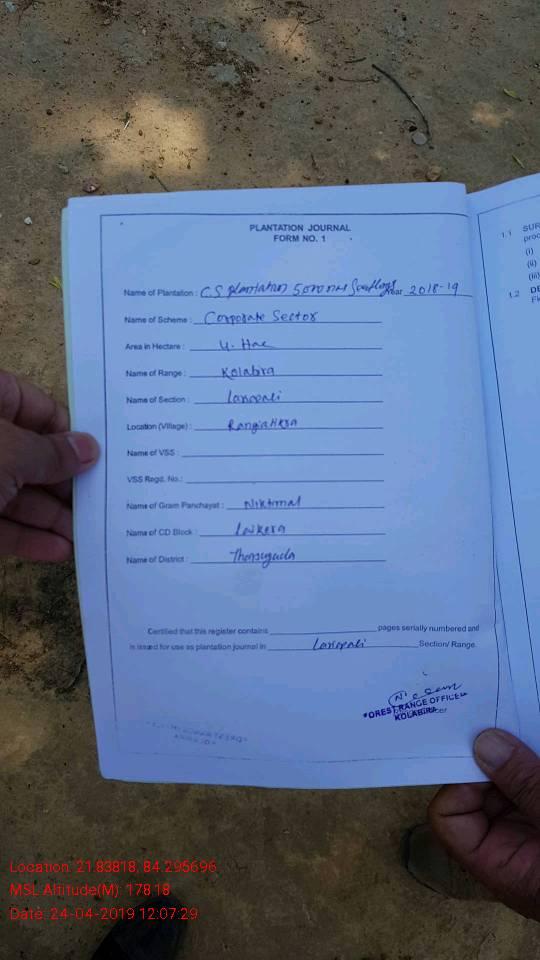 PLANTATION JOURNAL
FORM NO. 1
Name of Plantation : C.S plantation Year 2018-19
Name of Scheme : Corporate Sector
Area in Hectare : 4. Hac
Name of Range : Kolabira
Name of Section : Laxopali
Location (Village) : Rangiatikra
Name of VSS :
VSS Regd. No. :
Name of Gram Panchayat : Niktimal
Name of CD Block : Laikera
Name of District : Jharsuguda
Certified that this register contains pages serially numbered and
is issued for use as plantation journal in Laxopali Section/ Range
FOREST RANGE OFFICER
KOLABIRA
1.1 SUR
proc
(i)
(ii)
(iii)
1.2 DE
Location: 21.83818, 84.295696
MSL Altitude(M): 178.18
Date: 24-04-2019 12:07:29